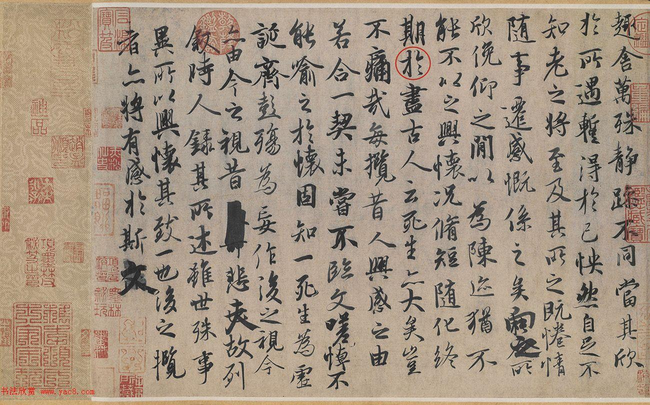 趣舍萬殊靜躁不同當其欣
於所遇蹔得於己怏然自足不
知老之將至及其所之既惓情
隨事遷感慨係之矣向之所
欣俛仰之閒以為陳迹猶不
能不以之興懷況脩短隨化終
期於盡古人云死生亦大矣豈
不痛哉每攬昔人興感之由
若合一契未嘗不臨文嗟悼不
能喻之於懷固知一死生為虛
誕齊彭殤為妄作後之視今
亦由今之視昔悲夫故列
敘時人錄其所述雖世殊事
異所以興懷其致一也後之攬
者亦將有感於斯文
书法欣赏 www.yac8.com